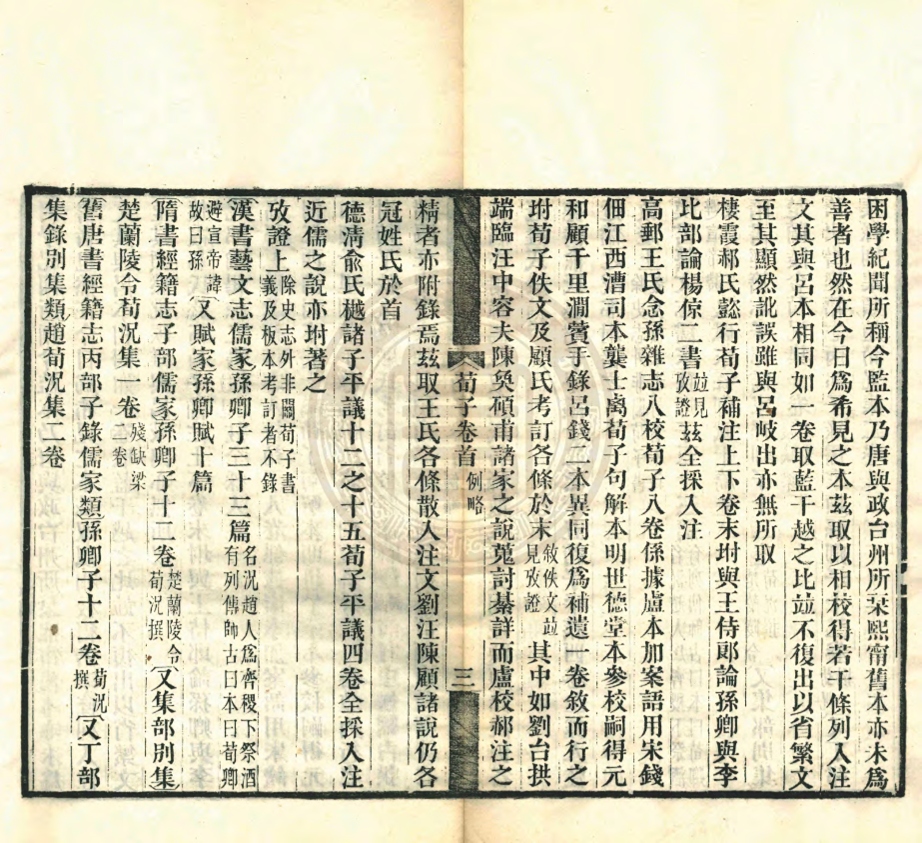 困學紀聞所稱今監本乃唐與政台州所栞熙甯舊本亦未爲
善者也然在今日爲希見之本茲取以相校得若干條列入注
文其與呂本相同如一卷取藍干越之比竝不復出以省繁文
至其顯然訛誤雖與呂岐出亦無所取
棲霞郝氏懿行荀子補注上下卷末坿與王侍郎論孫卿與李
比部論楊倞二書竝見攷證茲全採入注
高郵王氏念孫雜志八校荀子八卷係據盧本加案語用宋錢
佃江西漕司本龔士卨荀子句解本明世德堂本參校嗣得元
和顧千里澗薲手錄呂錢二本異同復爲補遺一卷敘而行之
坿荀子佚文及顧氏考訂各條於末敘佚文竝見攷證其中如劉台拱
端臨汪中容夫陳奐碩甫諸家之說蒐討綦詳而盧校郝注之
荀子卷首 例略 三
精者亦附錄焉茲取王氏各條散入注文劉汪陳顧諸說仍各
冠姓氏於首
德清俞氏樾諸子平議十二之十五荀子平議四卷全採入注
近儒之說亦坿著之
攷證上除史志外非關荀子書義及板本考訂者不錄
漢書藝文志儒家孫卿子三十三篇名況趙人爲齊稷下祭酒有列傳師古曰本曰荀卿
避宣帝諱故曰孫又賦家孫卿賦十篇
隋書經籍志子部儒家孫卿子十二卷楚蘭陵令荀況撰又集部別集
楚蘭陵令荀況集一卷殘缺梁二卷
舊唐書經籍志丙部子錄儒家類孫卿子十二卷荀況撰又丁部
集錄別集類趙荀況集二卷